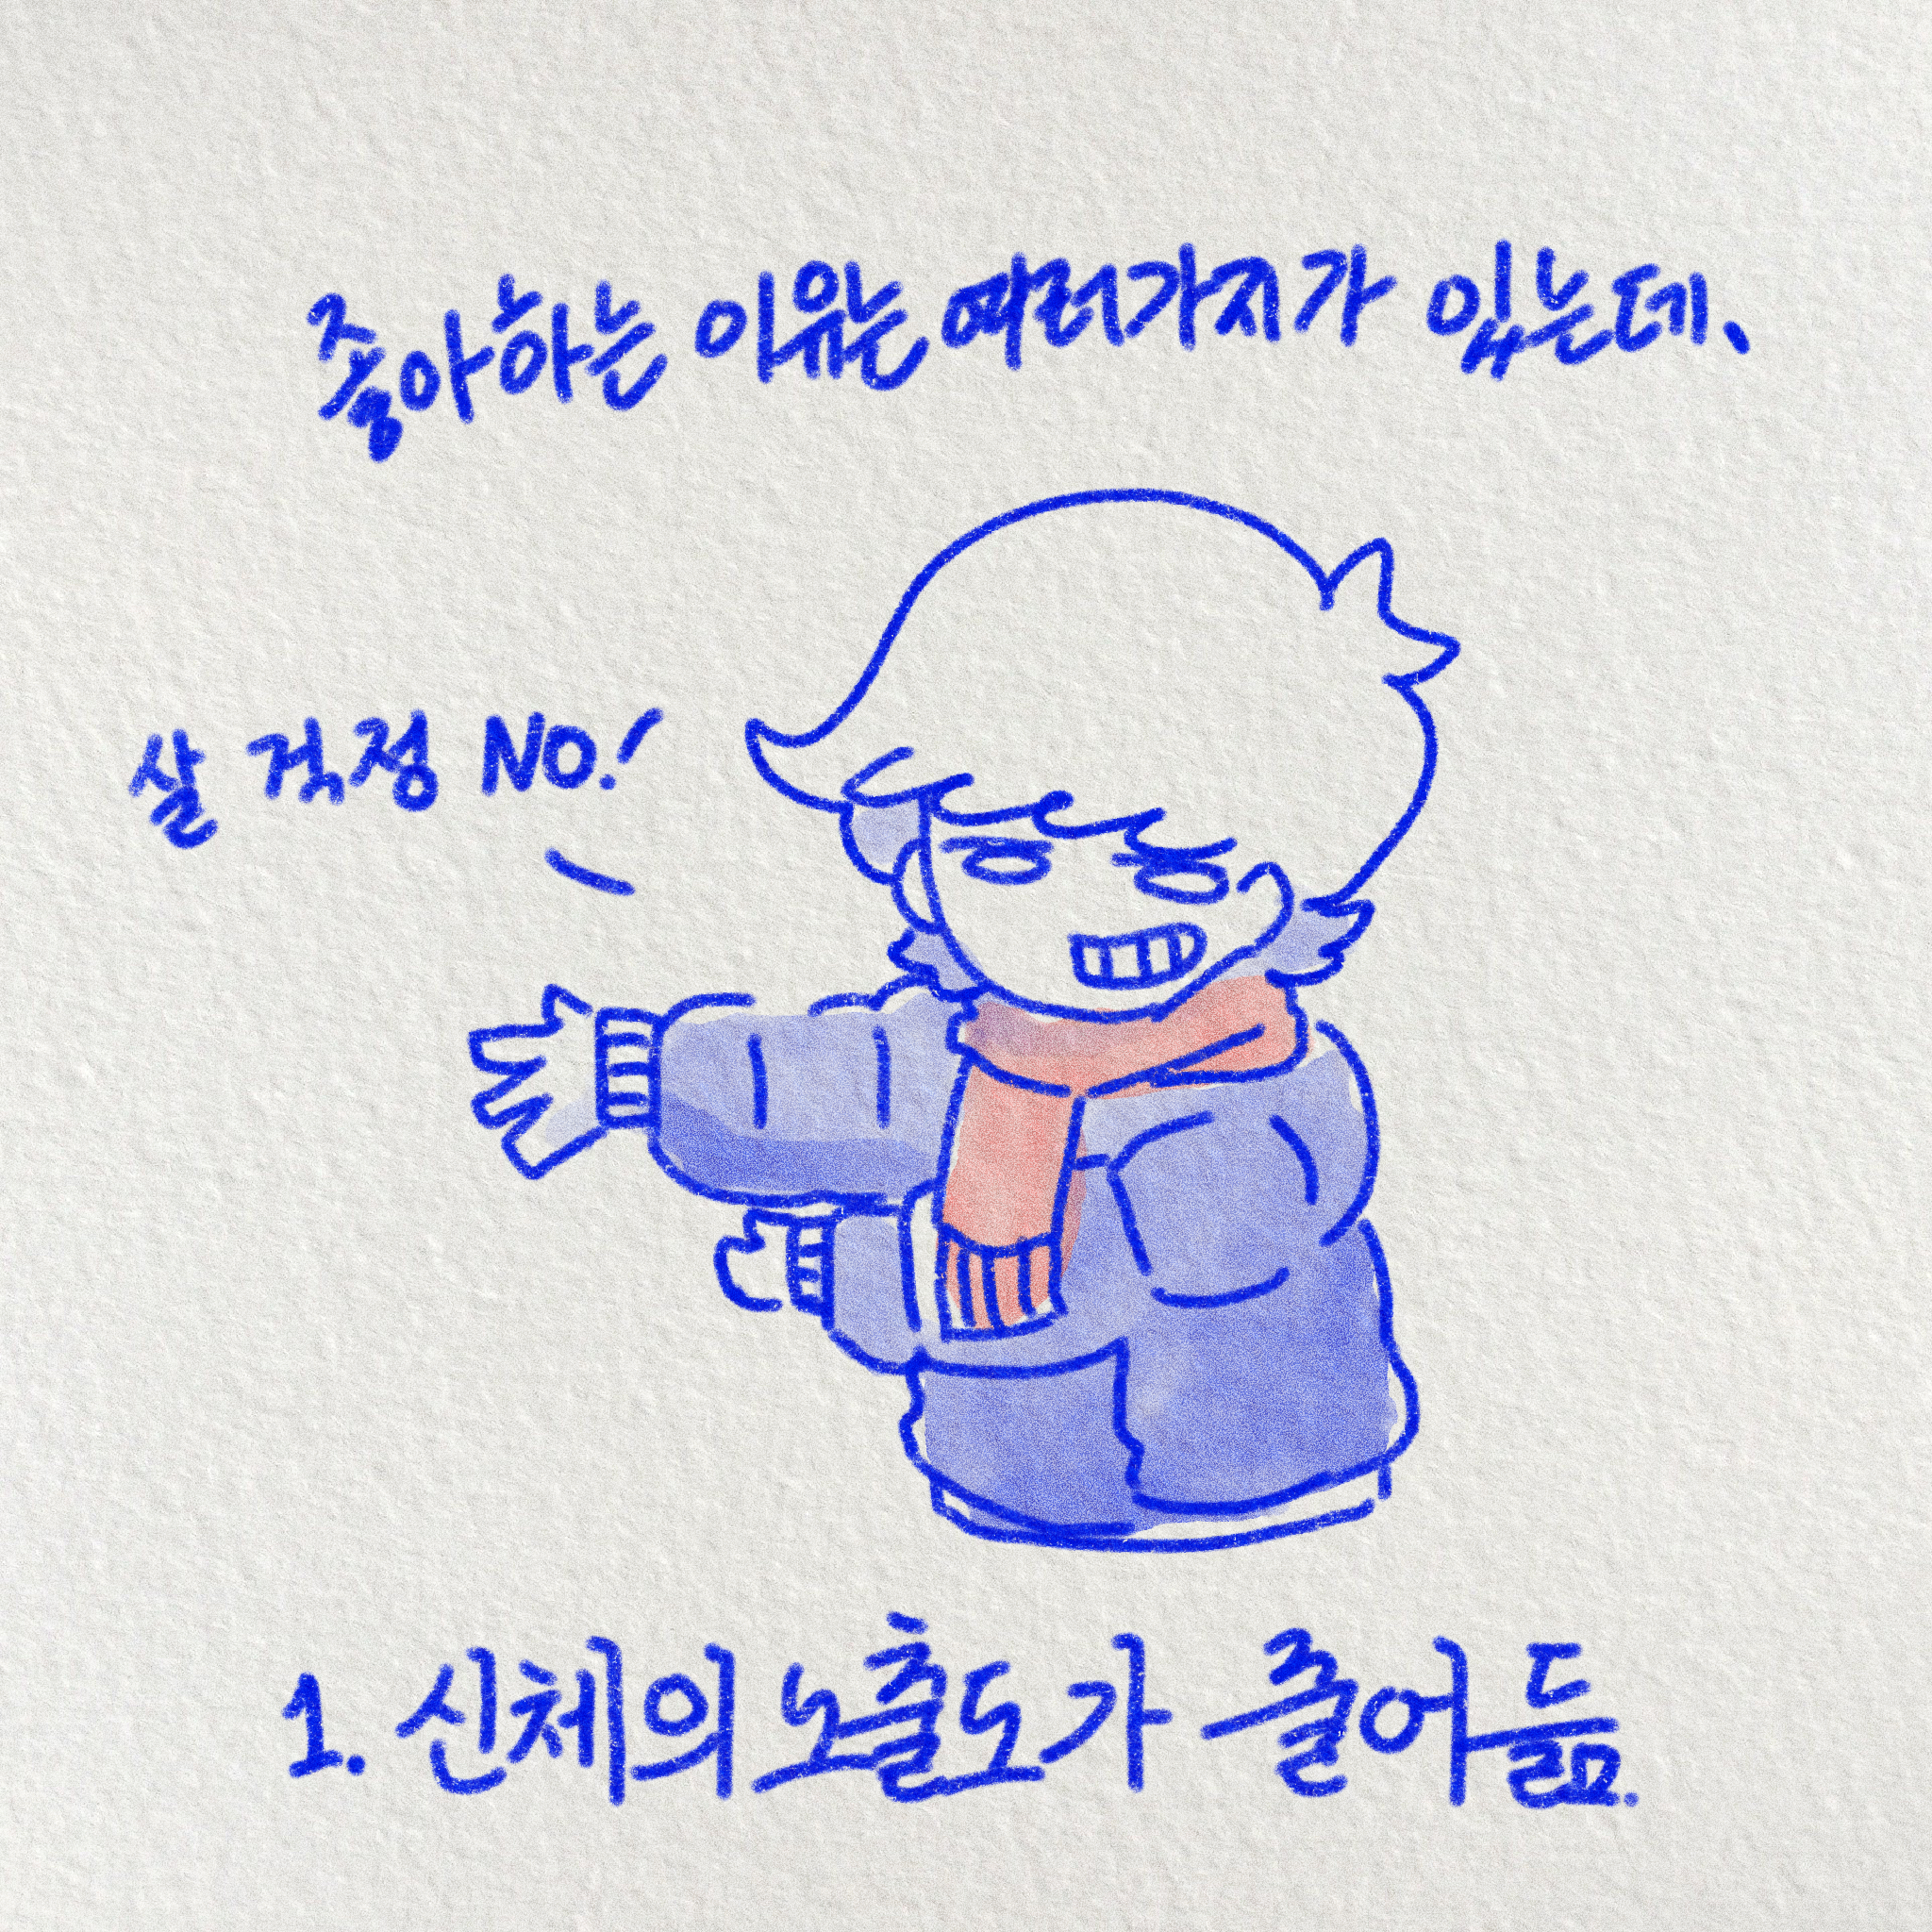 좋아하는 이유는 여러가지가 있는데,
살 걱정 NO!
1. 신체의 노출도가 줄어듦.